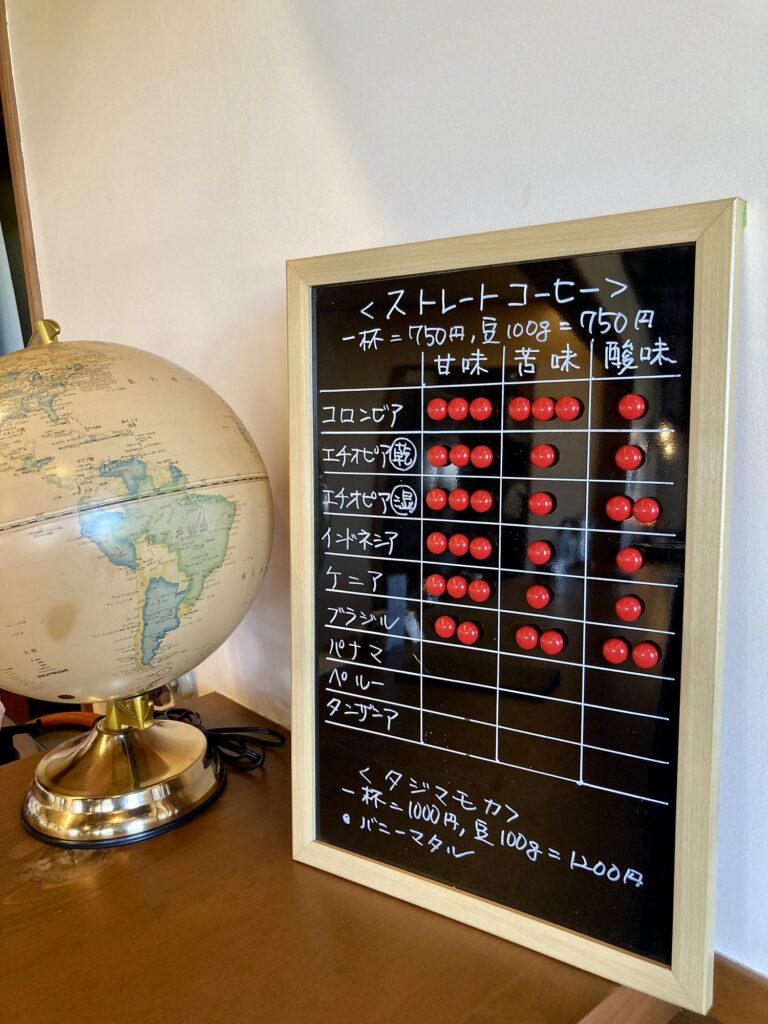 <ストレートコーヒー>
一杯=750円,豆100g=750円
甘味 苦味 酸味
コロンビア
エチオピア乾
エチオピア湿
インドネシア
ケニア
ブラジル
パナマ
ペルー
タンザニア
<タジマモカ>
一杯=1000円,豆100g=1200円
•バニーマタル
南アメリカ